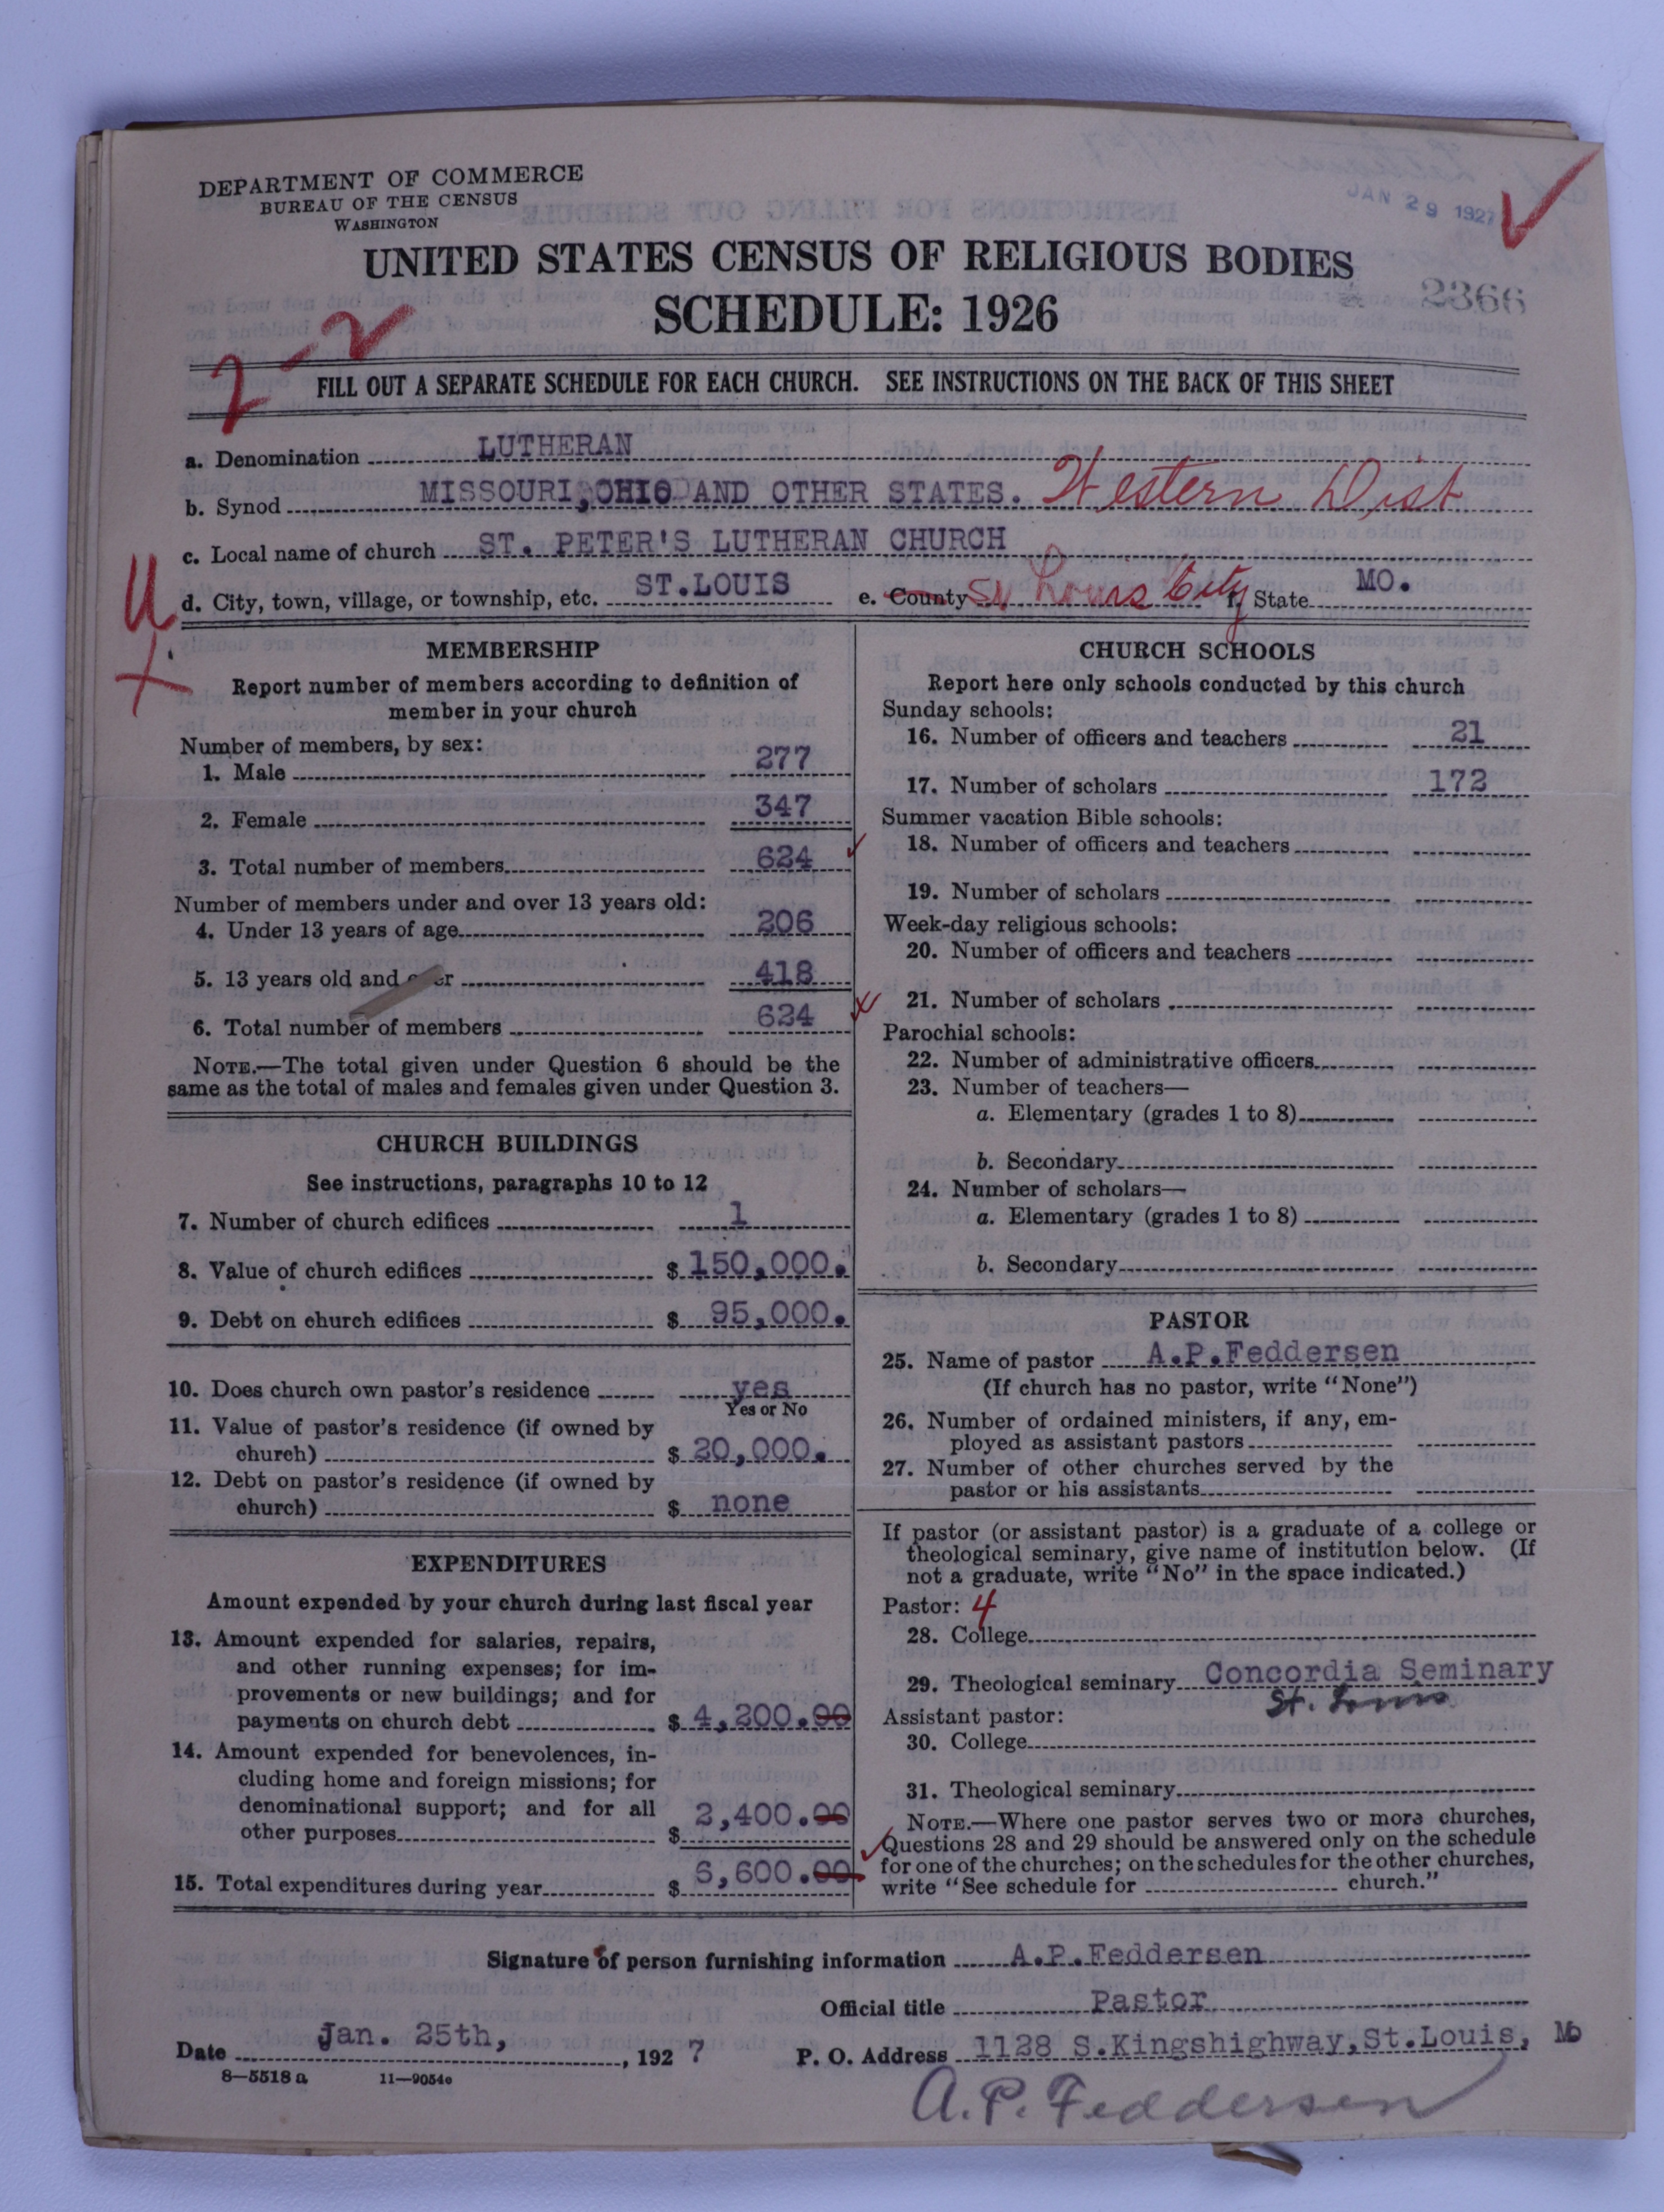 DEPARTMENT OF COMMERCE
BUREAU OF THE CENSUS
WASHINGTON
JAN 29 1927
UNITED STATES CENSUS OF RELIGIOUS BODIES
SCHEDULE: 1926
2366
2-2
FILL OUT A SEPARATE SCHEDULE FOR EACH CHURCH. SEE INSTRUCTIONS ON THE BACK OF THIS SHEET
a. Denomination LUTHERAN
b. Synod MISSOURI, OHIO AND OTHER STATES. Western Dist
c. Local name of church ST. PETER'S LUTHERAN CHURCH
d. City, town, village, or township, etc. ST.LOUIS e. County St Louis City f. State MO.
MEMBERSHIP
Report number of members according to definition of
member in your church
Number of members, by sex:
1. Male 277
2. Female 347
3. Total number of members 624
Number of members under and over 13 years old:
4. Under 13 years of age 206
5. 13 years old and over 418
6. Total number of members 624
NOTE.—The total given under Question 6 should be the
same as the total of males and females given under Question 3.
CHURCH BUILDINGS
See instructions, paragraphs 10 to 12
7. Number of church edifices 1
8. Value of church edifices $ 150,000.
9. Debt on church edifices $ 95,000.
10. Does church own pastor's residence yes
Yes or No
11. Value of pastor's residence (if owned by
church) $ 20,000.
12. Debt on pastor's residence (if owned by
church) $ none
EXPENDITURES
Amount expended by your church during last fiscal year
13. Amount expended for salaries, repairs,
and other running expenses; for im-
provements or new buildings; and for
payments on church debt $ 4,200.00
14. Amount expended for benevolences, in-
cluding home and foreign missions; for
denominational support; and for all
other purposes $ 2,400.00
15. Total expenditures during year $ 6,600.00
CHURCH SCHOOLS
Report here only schools conducted by this church
Sunday schools:
16. Number of officers and teachers 21
17. Number of scholars 172
Summer vacation Bible schools:
18. Number of officers and teachers
19. Number of scholars
Week-day religious schools:
20. Number of officers and teachers
21. Number of scholars
Parochial schools:
22. Number of administrative officers
23. Number of teachers—
a. Elementary (grades 1 to 8)
b. Secondary
24. Number of scholars—
a. Elementary (grades 1 to 8)
b. Secondary
PASTOR
25. Name of pastor A.P.Feddersen
(If church has no pastor, write "None")
26. Number of ordained ministers, if any, em-
ployed as assistant pastors
27. Number of other churches served by the
pastor or his assistants
If pastor (or assistant pastor) is a graduate of a college or
theological seminary, give name of institution below. (If
not a graduate, write "No" in the space indicated.)
Pastor: 4
28. College
29. Theological seminary Concordia Seminary
St. Louis
Assistant pastor:
30. College
31. Theological seminary
NOTE.—Where one pastor serves two or more churches,
Questions 28 and 29 should be answered only on the schedule
for one of the churches; on the schedules for the other churches,
write "See schedule for church."
Signature of person furnishing information A.P.Feddersen
Official title Pastor
Date Jan. 25th, , 1927 P. O. Address 1128 S.Kingshighway,St.Louis, Mo
8—5518 a 11—9054c
A.P. Feddersen